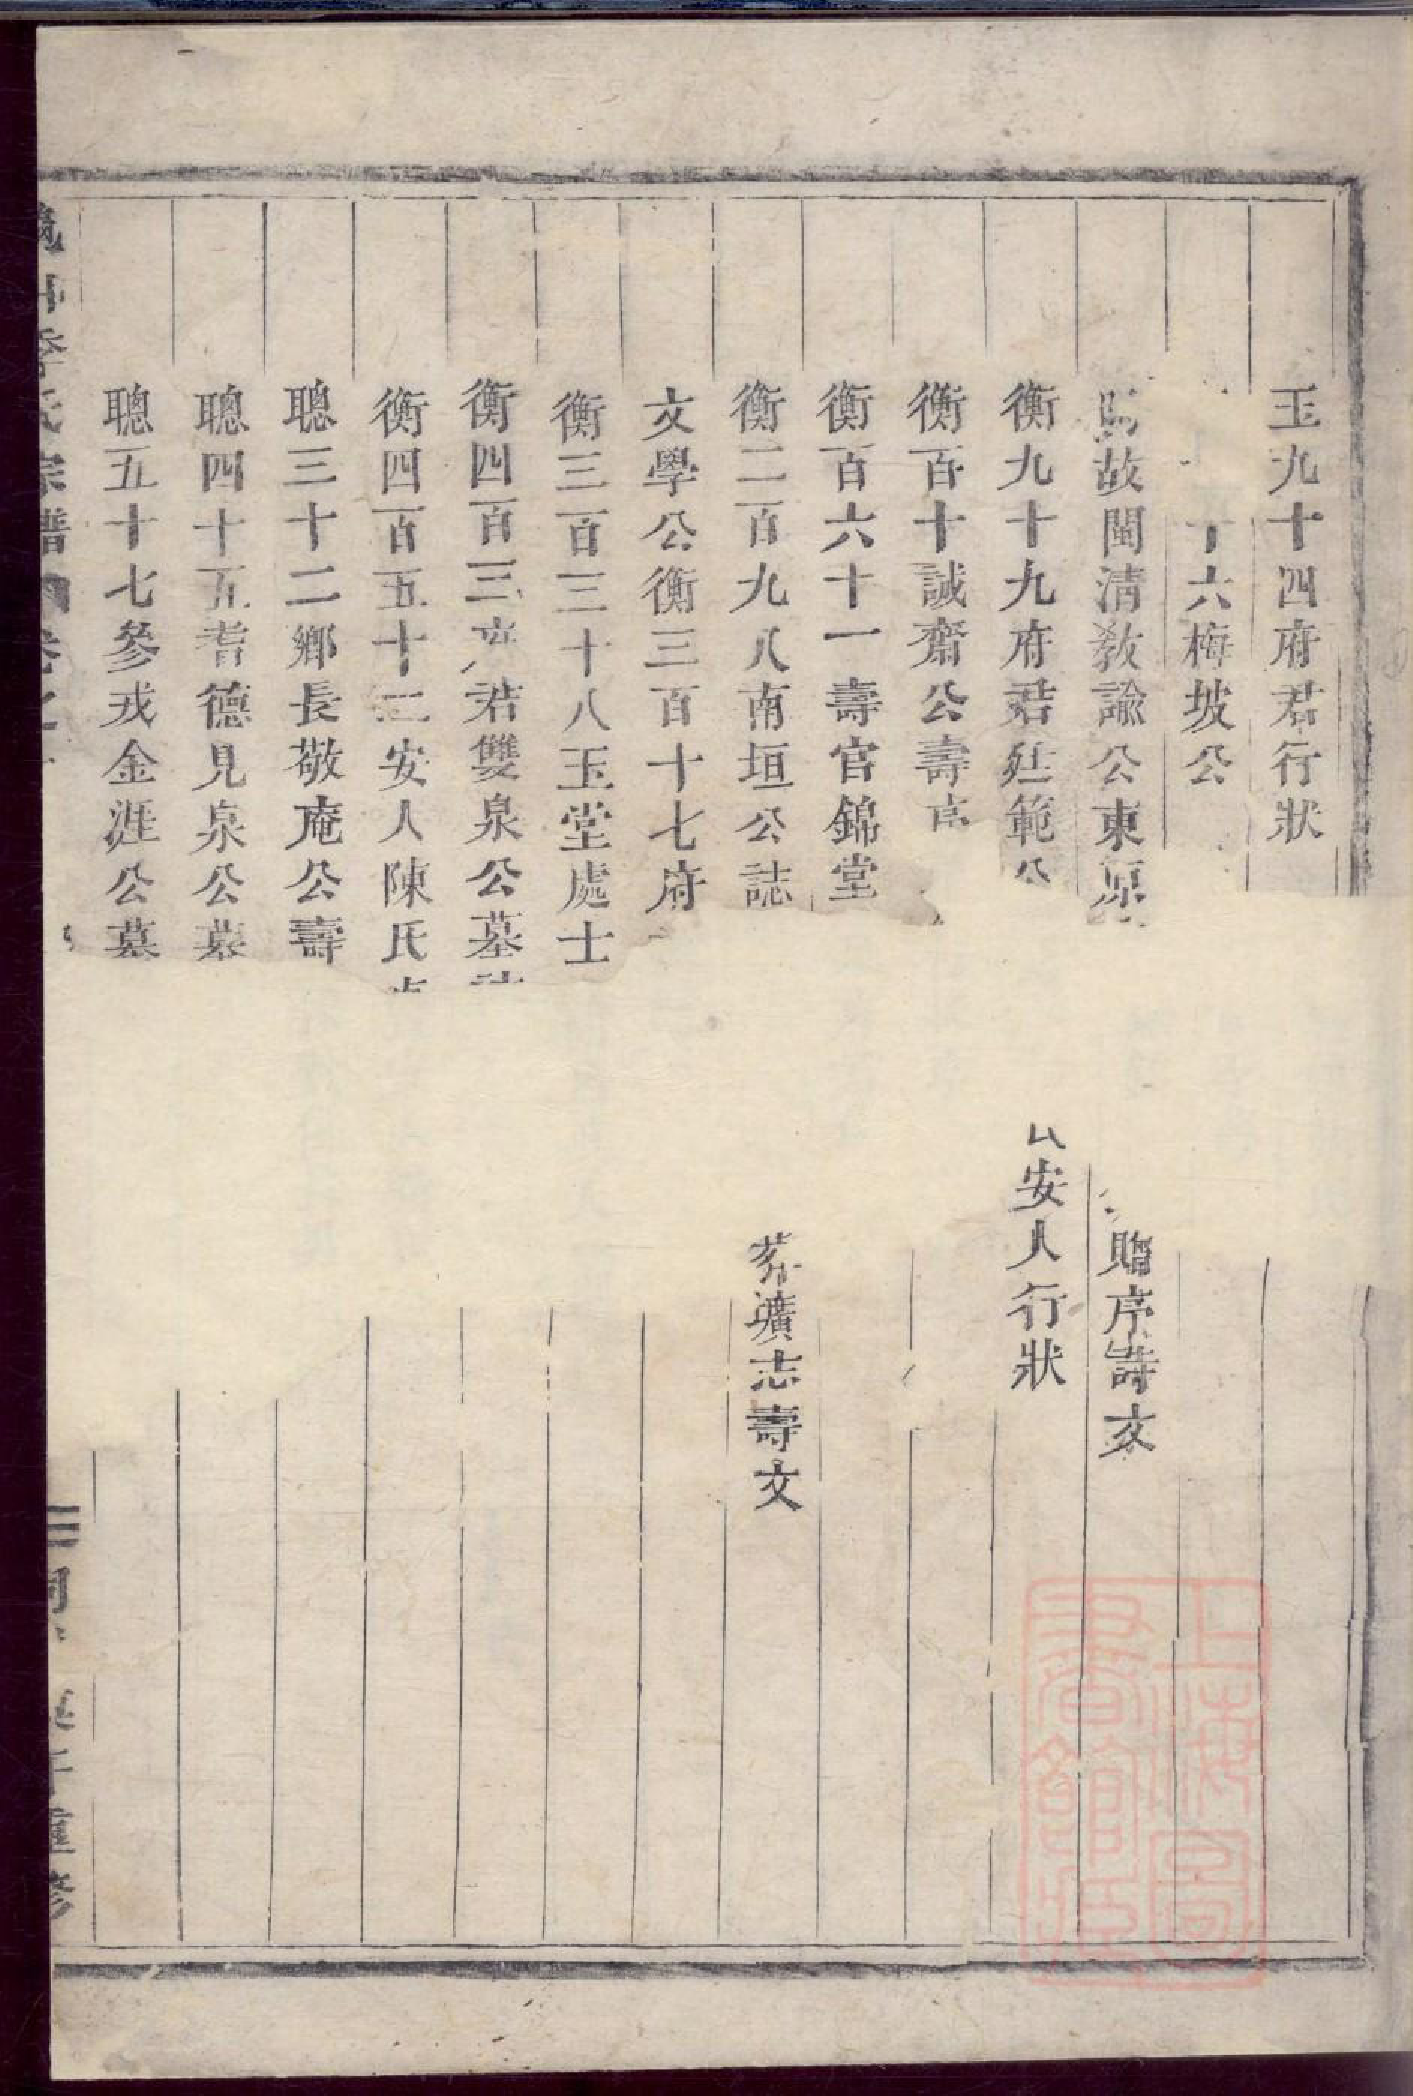 玉九十四府君行狀
十六梅坡公
故閩清敎諭公東原
贈序壽文
衡九十九府君廷範公
安人行狀
衡百十誠齋公壽官
衡百六十一壽官錦堂
衡二百九八南垣公誌
葬壙志壽文
文學公衡三百十七府
衡三百三十八玉堂處士
衡四百三六府君雙泉公墓
衡四百五十三安人陳氏
聰三十二鄉長敬庵公壽
聰四十五耆德見泉公墓
聰五十七參戎金涯公墓
氏宗譜 卷之
三 重修
上海圖書館藏